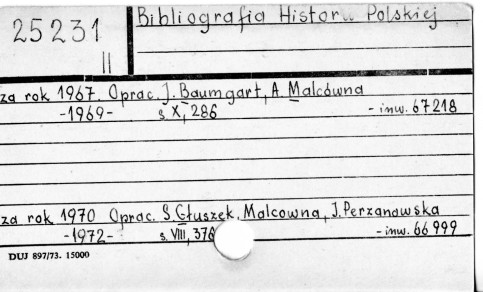 Bibliografia Historii Polskiej
25231
II
za rok 1967. Oprac. J. Baumgart, A. Malcówna
-1969- s X, 286 - inw. 67218
za rok 1970 Oprac. S. Głuszek, Malcowna, J. Perzanowska
-1972- s. VIII, - inw. 66999
DUJ 897/73. 15000